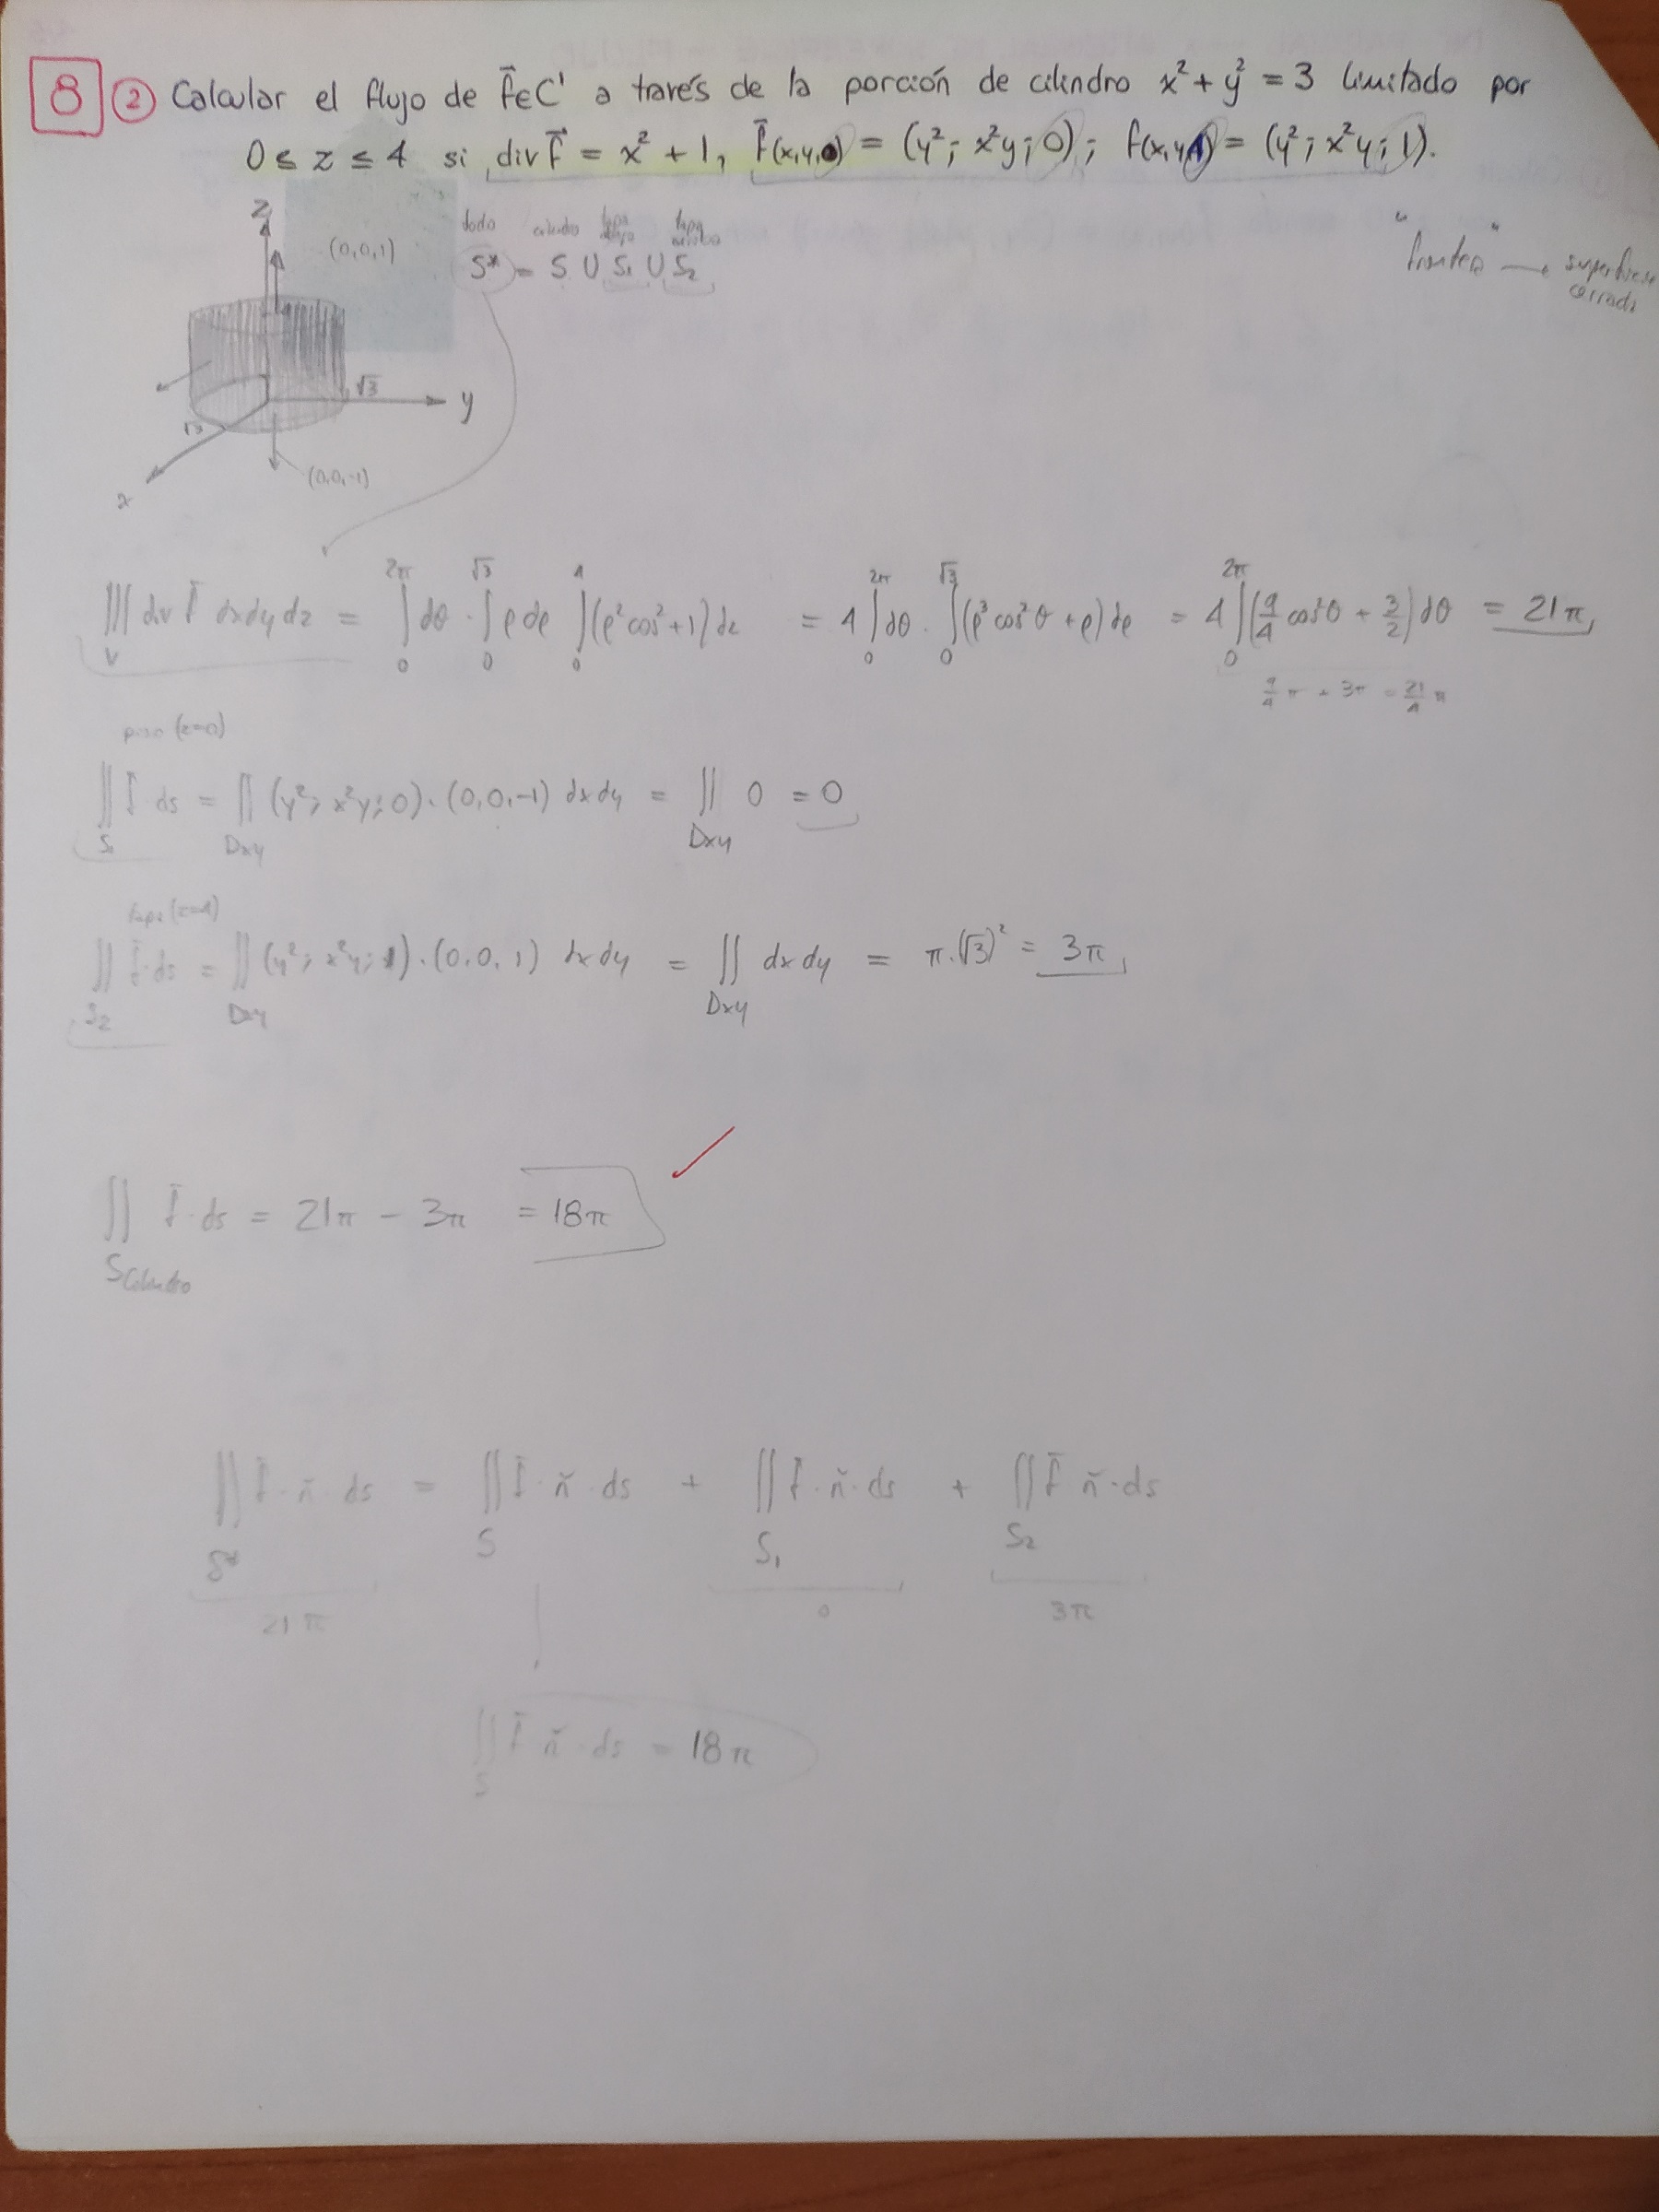 8 ② Calcular el flujo de f̄∈C¹ a través de la porción de cilindro x² + y² = 3 limitado por
0 ≤ z ≤ 4 si div f̄ = x² + 1, f̄(x,y,0) = (y²; x²y; 0); f(x,y,4) = (y²; x²y; 1).
z
(0,0,1)
todo cilindro tapa abajo tapa arriba
S* = S ∪ S₁ ∪ S₂
"frontera" → superficie cerrada
√3
y
√3
x
(0,0,-1)
∭_V div f̄ dxdydz = ∫₀^2π dθ · ∫₀^√3 ρdρ ∫₀^4 (ρ²cos²+1)dz = 4∫₀^2π dθ · ∫₀^√3 (ρ³cos²θ + ρ)dρ = 4∫₀^2π (9/4 cos²θ + 3/2)dθ = 21π
9/4 π + 3π = 21/4 π
piso (z=0)
∬_S₁ f̄ ds = ∬_Dxy (y²; x²y; 0) · (0,0,-1) dxdy = ∬_Dxy 0 = 0
tapa (z=4)
∬_S₂ f̄·ds = ∬_Dxy (y²; x²y; 1) · (0,0,1) dxdy = ∬_Dxy dxdy = π.(√3)² = 3π
∬_S cilindro f̄·ds = 21π − 3π = 18π
∬_S* f̄·ň·ds = ∬_S f̄·ň·ds + ∬_S₁ f̄·ň·ds + ∬_S₂ f̄ ň·ds
21π 0 3π
∬_S f̄ ň·ds = 18π